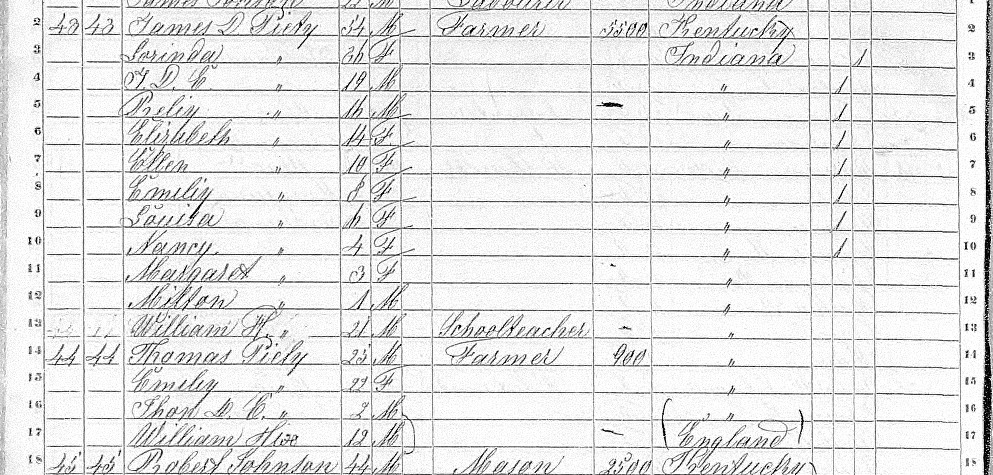 Indiana 1
2 43 43 James D Piety 54 M Farmer 5500 Kentucky 2
3 Lorinda " 36 F Indiana 1 3
4 T. D. C. " 19 M " 1 4
5 " 16 M " 1 5
6 Elizabeth " 14 F " 1 6
7 Ellen " 10 F " 1 7
8 Emiliy " 8 F " 1 8
9 Louisa " 6 F " 1 9
10 Nancy " 4 F " 1 10
11 Margaret " 3 F " 11
12 Milton " 1 M " 12
13 William H. " 21 M Schoolteacher " 13
14 44 44 Thomas Piety 25 M Farmer 900 " 14
15 Emiliy " 22 F " 15
16 Thos D. C. " 2 M " 16
17 William Hix 12 M (England) 17
18 45 45 Robert Johnson 44 M Mason 2500 Kentucky 18